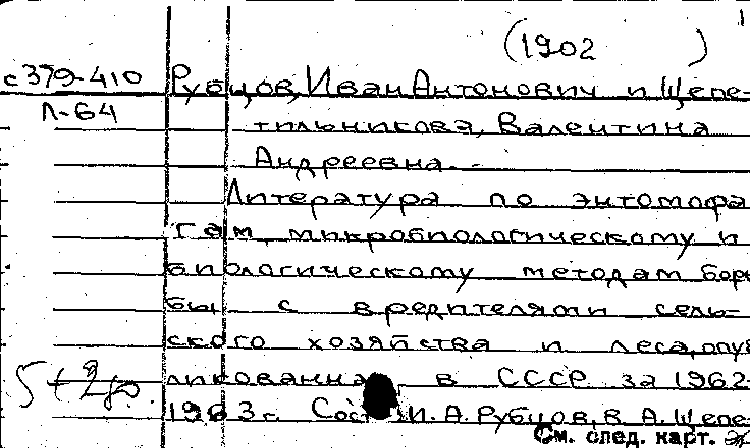 1
(1902 )
с379-410 Рубцов, Иван Антонович и Щепе-
Л-64 тильникова, Валентина
Андреевна.
Литература по энтомофа
гам, микробиологическому и
биологическому методам борь
бы с вредителями сель-
ского хозяйства и леса, опуб
ликованная в СССР за 1962-
1963 г. Сост. И. А. Рубцов, В. А. Щепе-
См. след. карт.